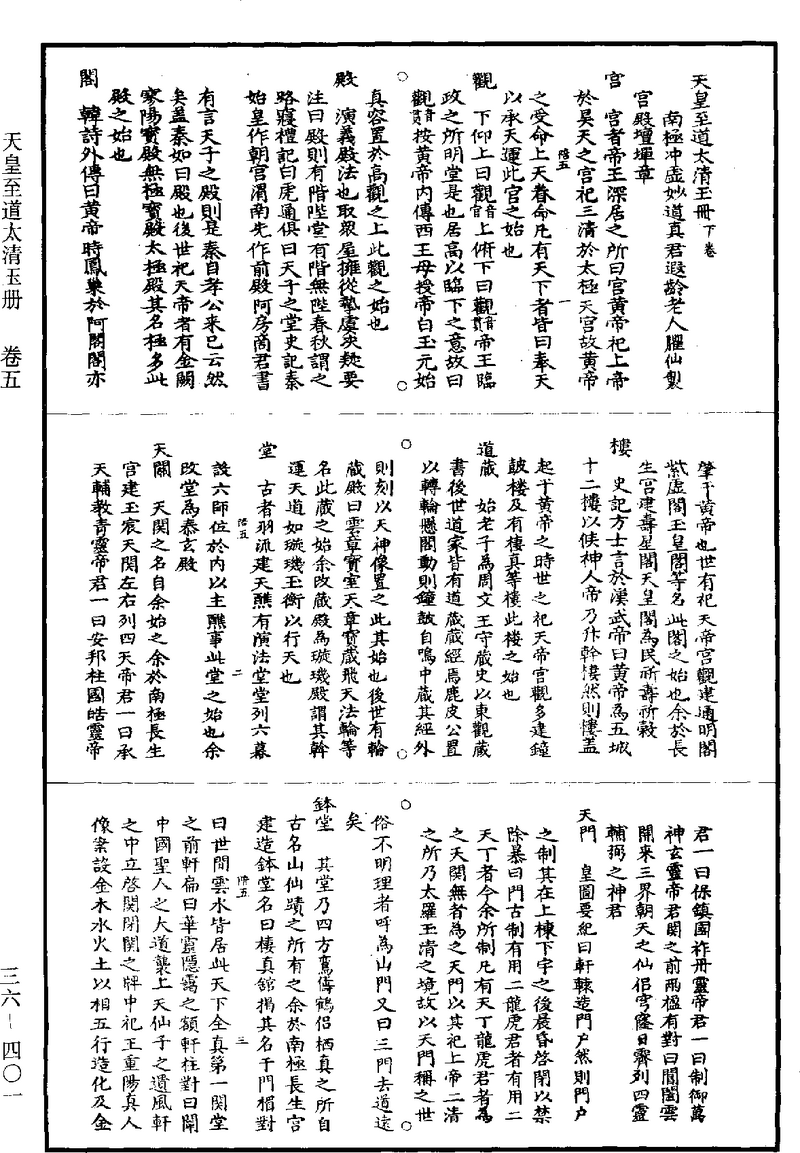 天皇至道太清玉册 卷五
三六—四〇一
天皇至道太清玉册 下卷
南極冲虛妙道真君遐齡老人臞仙製
宮殿壇墠章
宮 宮者帝王深居之所曰宮黃帝祀上帝
於昊天之宮祀三清於太極天宮故黃帝
階五 一
之受命上天眷命凡有天下者皆曰奉天
以承天運此宮之始也
觀 下仰上曰觀音 上俯下曰觀音貫帝王臨
政之所明堂是也居高以臨下之意故曰
觀音貫按黃帝內傳西王母授帝白玉元始
真容置於高觀之上此觀之始也
殿 演義殿法也取眾屋擁從摯虞決疑要
注曰殿則有階陛堂有階無陛春秋謂之
路寢禮記白虎通俱曰天子之堂史記秦
始皇作朝宮渭南先作前殿阿房商君書
有言天子之殿則是秦自孝公來已云然
矣蓋秦如曰殿也後世祀天帝者有金闕
寥陽寶殿無極寶殿太極殿其名極多此
殿之始也
閣 韓詩外傳曰黃帝時鳳巢於阿閣閣亦
肇于黃帝也世有祀天帝宮觀建通明閣
紫虛閣玉皇閣等名此閣之始也余於長
生宮建壽星閣天皇閣為民祈壽祈穀
樓 史記方士言於漢武帝曰黃帝為五城
十二樓以候神人帝乃作幹樓然則樓蓋
起于黃帝之時世之祀天帝宮觀多建鐘
鼓樓及有棲真等樓此樓之始也
道藏 始老子為周文王守藏史以東觀藏
書後世道家皆有道藏藏經焉鹿皮公置
以轉輪懸閣動則鐘鼓自鳴中藏其經外
則刻以天神像置之此其始也後世有輪
藏殿曰雲章寶室天章寶藏飛天法輪等
名此藏之始余改藏殿為璇璣殿謂其幹
運天道如璇璣玉衡以行天也
堂 古者羽流建天醮有演法堂堂列六幕
階五 二
設六師位於內以主醮事此堂之始也余
改堂為泰玄殿
天關 天関之名自余始之余於南極長生
宮建玉宸天関左右列四天帝君一曰承
天輔教青靈帝君一曰安邦柱國皓靈帝
君一曰保鎮國祚丹靈帝君一曰制御萬
神玄靈帝君関之前兩楹有對曰閶闔雲
開來三界朝天之仙侶穹窿日霽列四靈
輔弼之神君
天門 皇圖要紀曰軒轅造門戶然則門戶
之制其在上棟下宇之後晨昏啓閉以禁
除暴曰門古制有用二龍虎君者有用二
天丁者今余所制凡有天丁龍虎君者為
之天関無者為之天門以其祀上帝二清
之所乃太羅玉清之境故以天門稱之世
俗不明理者呼為山門又曰三門去道遠
矣
鉢堂 其堂乃四方鸞儔鶴侶栖真之所自
古名山仙蹟之所有之余於南極長生宮
建造鉢堂名曰棲真館揭其名于門楣對
階五 三
曰世間雲水皆居此天下全真第一関堂
之前軒扁曰華靈隱靄之額軒柱對曰闡
中國聖人之大道襲上天仙子之遺風軒
之中立啓関閉関之牌中祀王重陽真人
像案設金木水火土以相五行造化及金